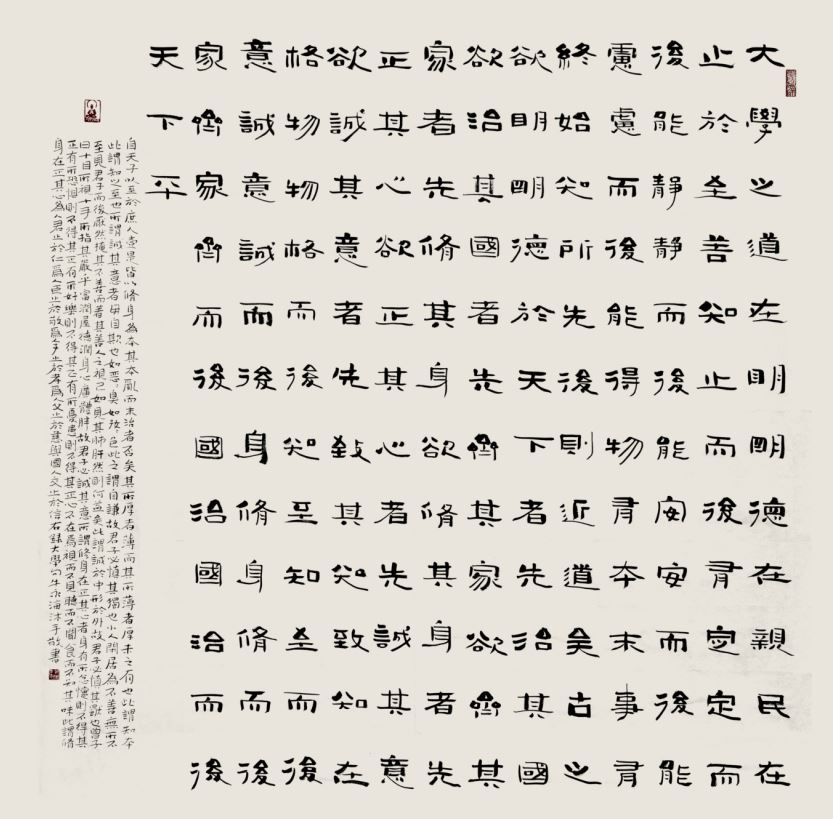 大學之道在明明德在親民在
止於至善知止而後有定定而
後能靜靜而後能安安而後能
慮慮而後能得物有本末事有
終始知所先後則近道矣古之
欲明明德於天下者先治其國
欲治其國者先齊其家欲齊其
家者先脩其身欲脩其身者先
正其心欲正其心者先誠其意
欲誠其意者先致其知致知在
格物物格而後知至知至而後
意誠意誠而後身脩身脩而後
家齊家齊而後國治國治而後
天下平
自天子以至於庶人壹是皆以脩身為本其本亂而末治者否矣其所厚者薄而其所薄者厚未之有也此謂知本
此謂知之至也所謂誠其意者毋自欺也如惡惡臭如好好色此之謂自謙故君子必慎其獨也小人閒居為不善無所不
至見君子而後厭然揜其不善而著其善人之視己如見其肺肝然則何益矣此謂誠於中形於外故君子必慎其獨也曾子
曰十目所視十手所指其嚴乎富潤屋德潤身心廣體胖故君子必誠其意所謂脩身在正其心者身有所忿懥則不得其
正有所恐懼則不得其正有所好樂則不得其正有所憂患則不得其正心不在焉視而不見聽而不聞食而不知其味此謂脩
身在正其心為人君止於仁為人臣止於敬為人子止於孝為人父止於慈與國人交止於信右錄大學句牛永海沐手敬書